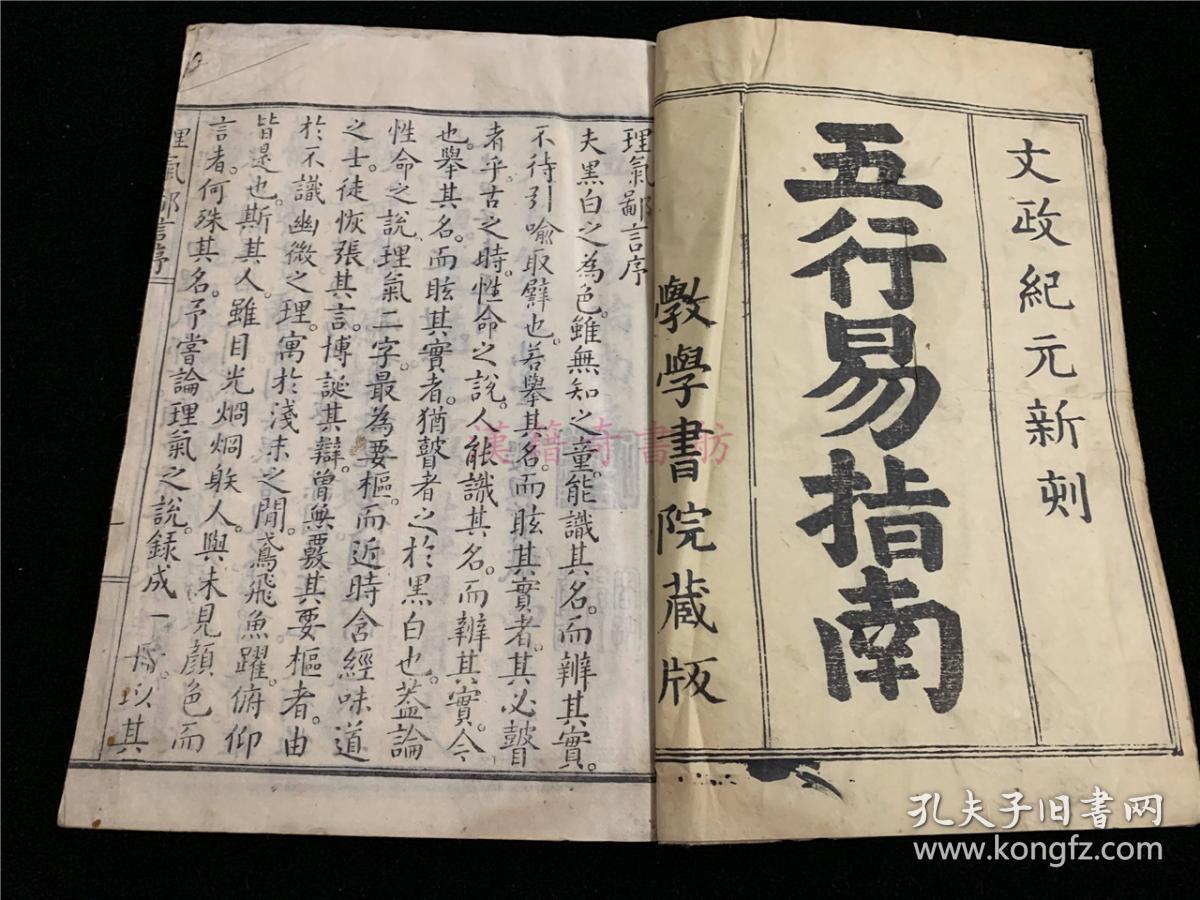 文政紀元新刻
五行易指南
數學書院蔵版
理氣鄙言序
夫黑白之為色。雖無知之童。能識其名。而辨其實。
不待引喻取譬也。若舉其名。而眩其實者。其必瞽
者乎。古之時。性命之說。人能識其名。而辨其實。今
也。舉其名。而眩其實者。猶瞽者之於黑白也。蓋論
性命之說。理氣二字。最為要樞。而近時含經味道
之士。徒恢張其言。博誕其辯。曾無覈其要樞者。由
於不識幽微之理。寓於淺末之間。鳶飛魚躍。俯仰
皆是也。斯其人。雖目光烱烱躲人。與未見顏色而
言者。何殊其名。予嘗論理氣之說。錄成一冊。以其
理氣鄙言序
漢籍奇書坊
孔夫子旧书网
www.kongfz.com